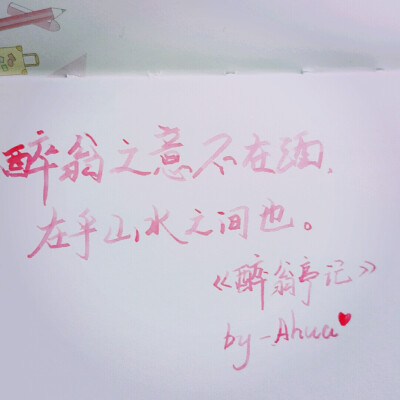 醉翁之意不在酒,
在乎山水之间也。
《醉翁亭记》
by-Ahua